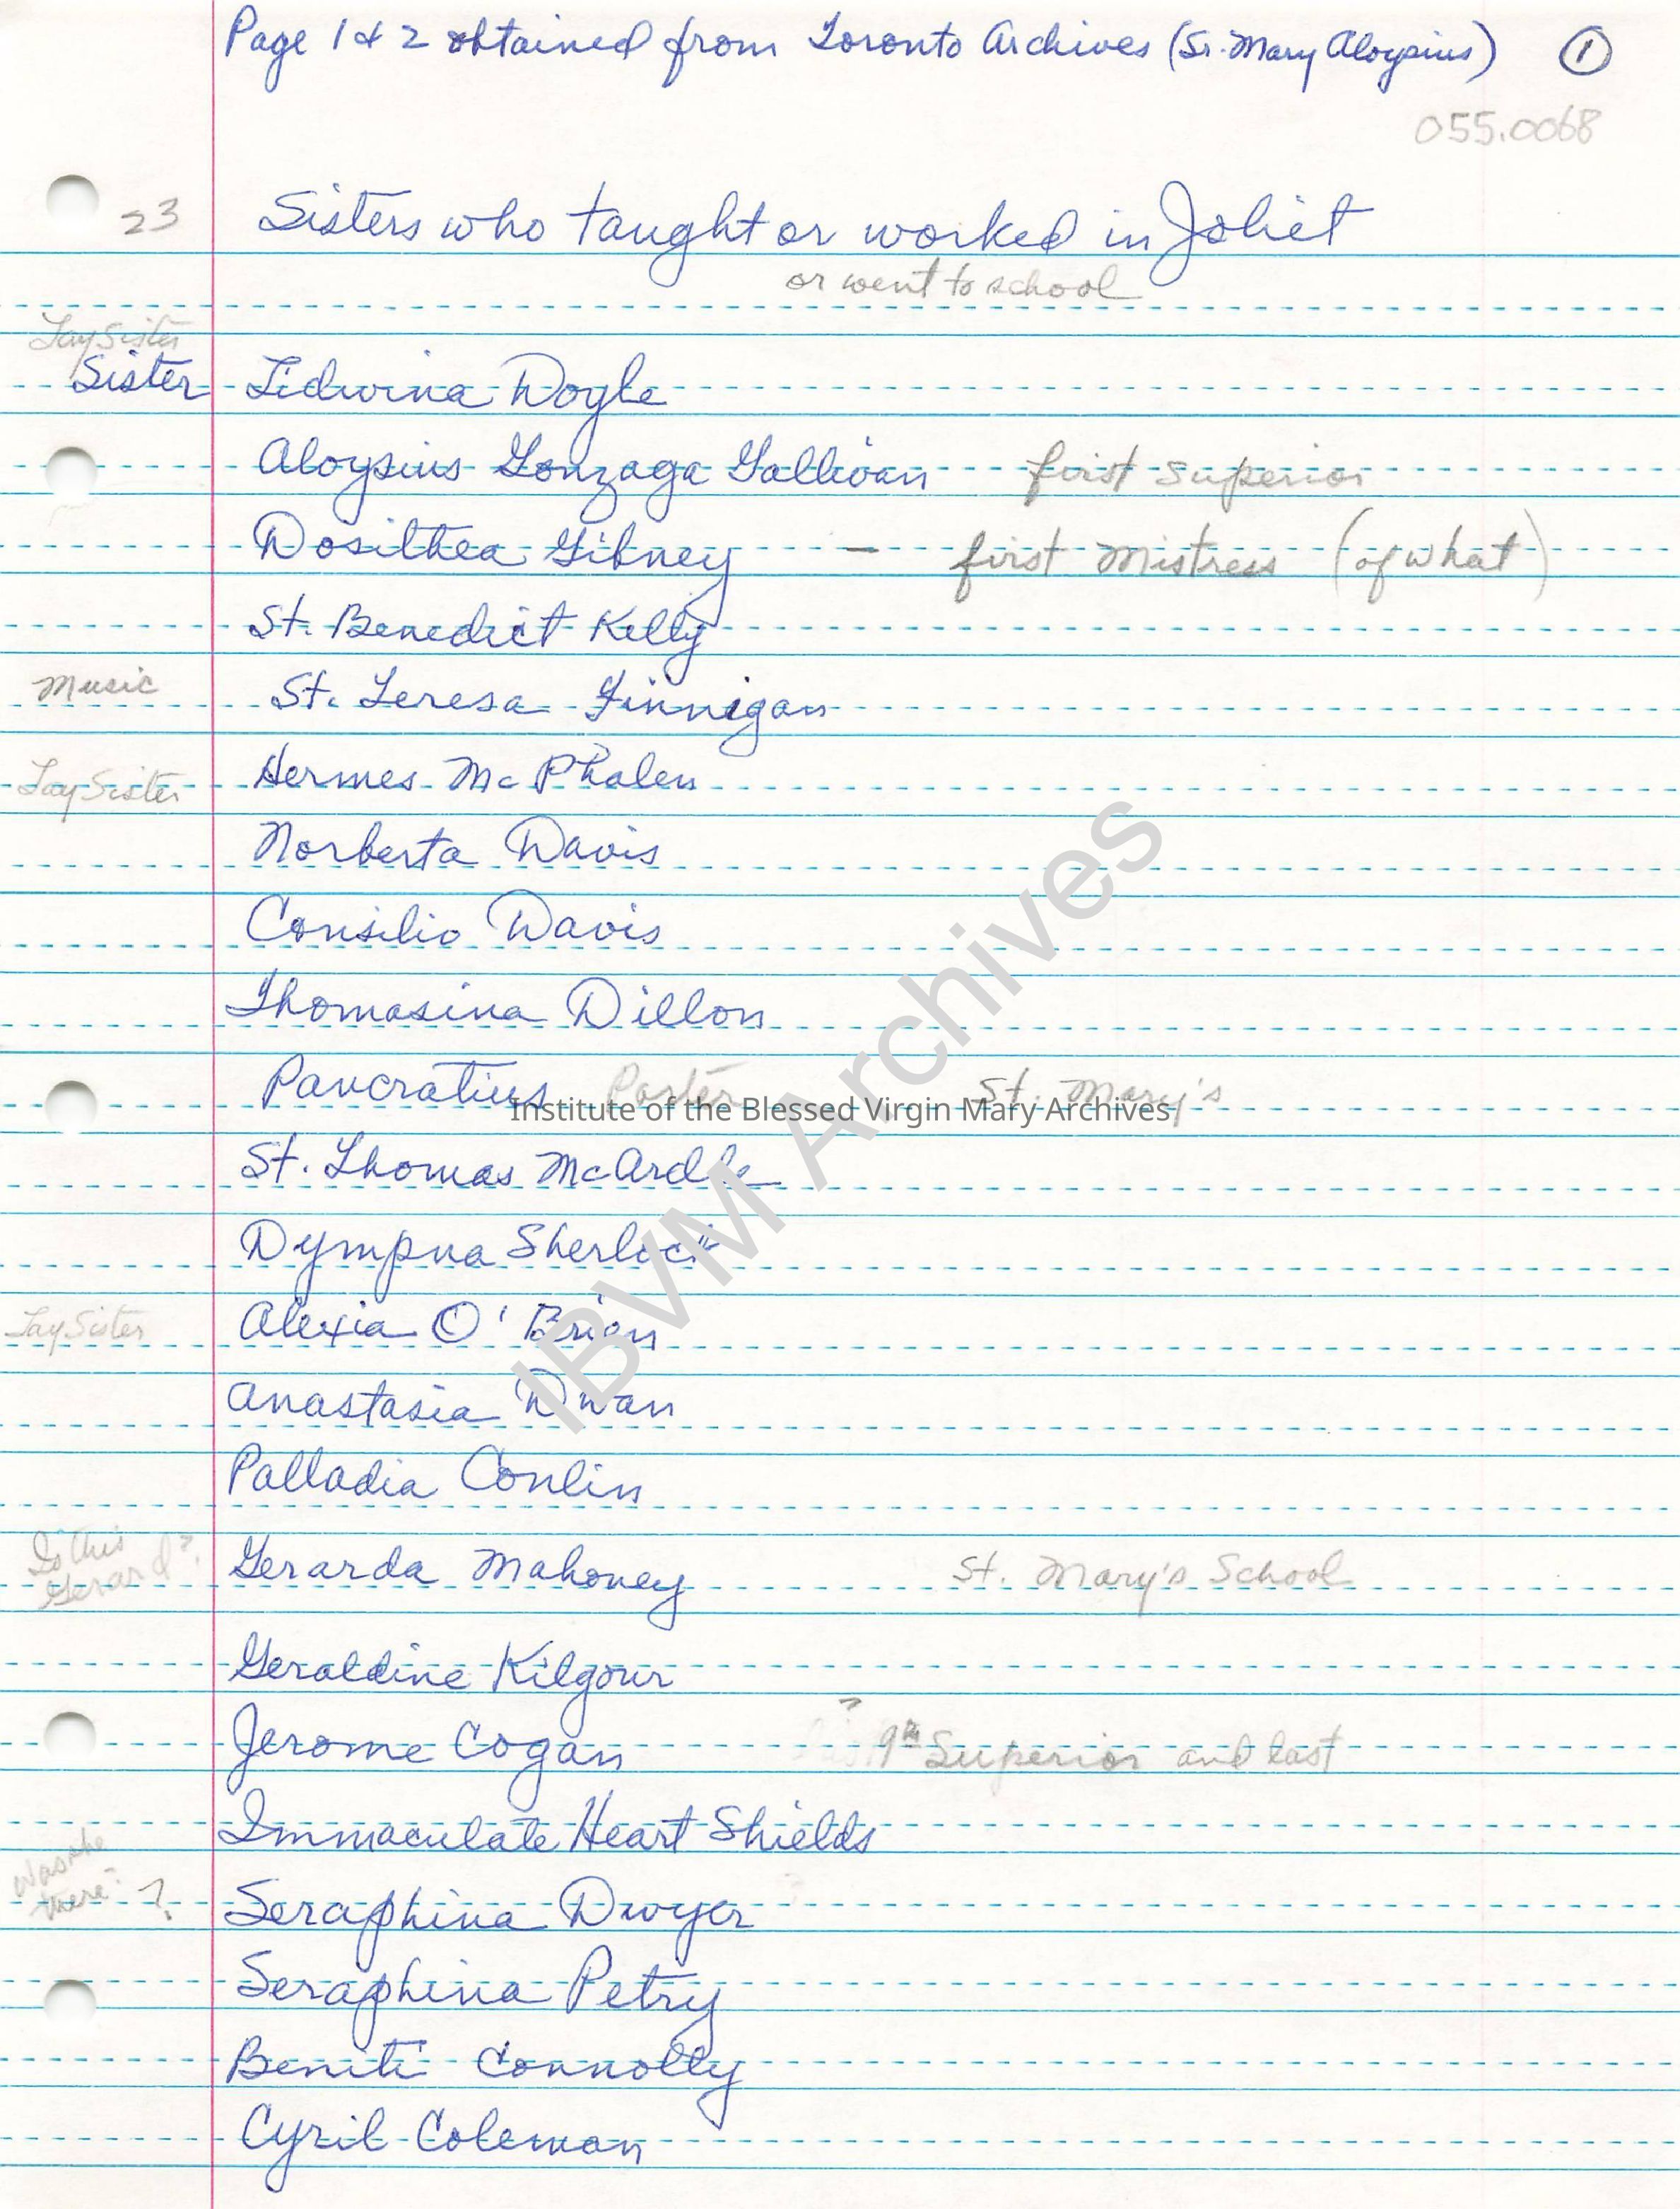 Page 1 & 2 obtained from Toronto Archives (Sr. Mary Aloysius) 1
055.0068
23 Sisters who taught or worked in Joliet
or went to school
Lay Sister
Sister Lidwina Doyle
Aloysius Gonzaga Gallivan first superior
Dosithea Gibney - first Mistress (of what)
St. Benedict Kelly
Music St. Teresa Finnigan
Lay Sister Hermes McPhalen
Norberta Davis
Consilio Davis
Thomasina Dillon
Pancratius Porter St. Mary's
Institute of the Blessed Virgin Mary Archives
IBVM Archives
St. Thomas McArdle
Dympna Sherlock
Lay Sister Alexia O'Brien
Anastasia Dwan
Palladia Conlin
Is this Gerard? Gerarda Mahoney St. Mary's School
Geraldine Kilgour
Jerome Cogan ? 9th Superior and last
Immaculate Heart Shields
Was she there? ? Seraphina Dwyer
Seraphina Petry
Beniti Connolly
Cyril Coleman